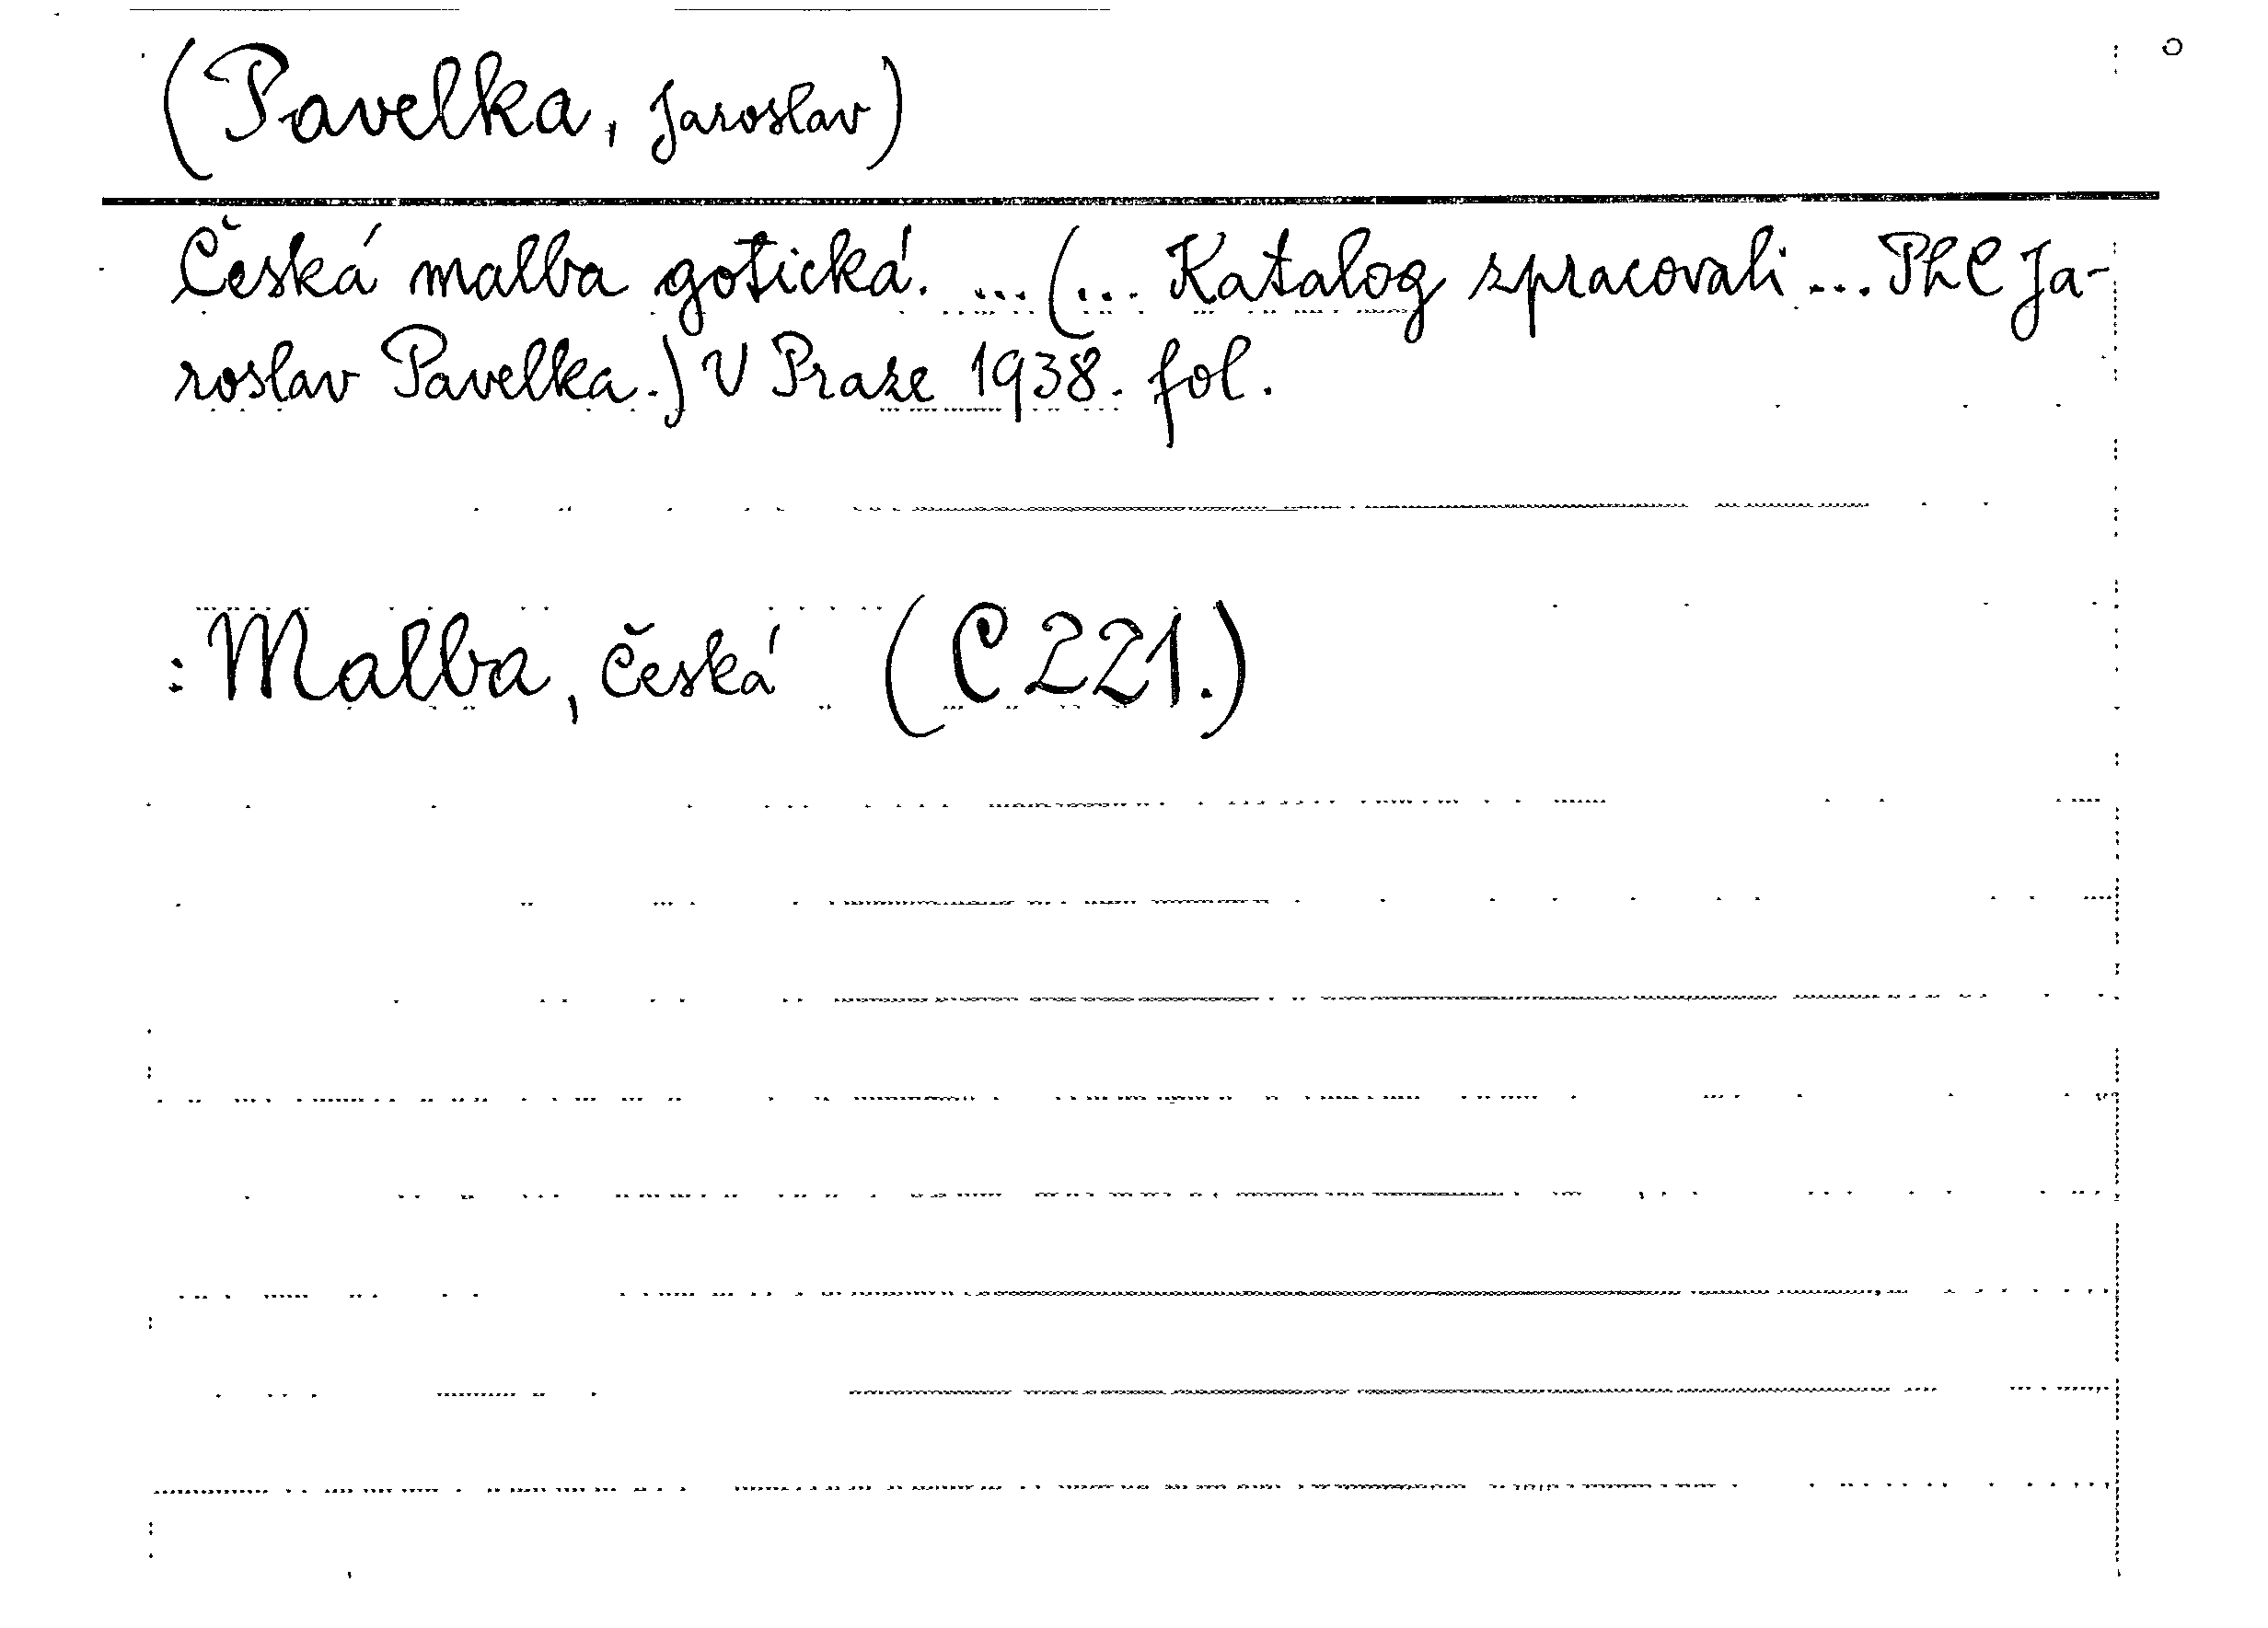 (Pavelka, Jaroslav)
Česká malba gotická. ... (... Katalog zpracovali ... PhC Ja-
roslav Pavelka.) V Praze 1938. fol.
: Malba, česká (C 221.)